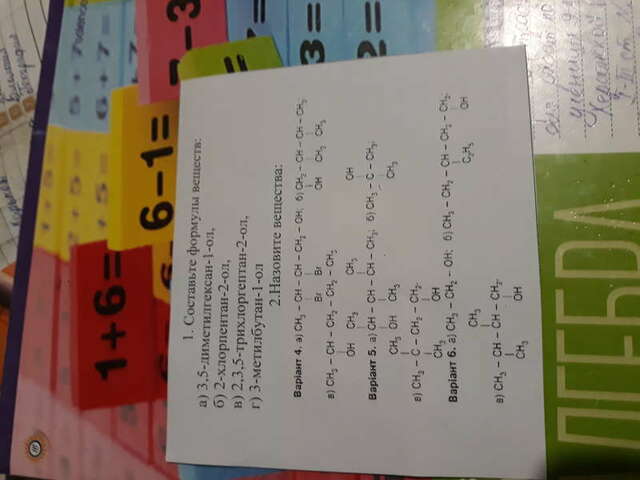 Харьков
география
2 + 5 =
5 + 7
science
1+6=
+ 5 =
6 + 7 =
6-1=
-3
1. Составьте формулы веществ:
а) 3,5-диметилгексан-1-ол,
б) 2-хлорпентан-2-ол,
в) 2,3,5-трихлоргептан-2-ол,
г) 3-метилбутан-1-ол
2.Назовите вещества:
Варіант 4. а) CH₃ – CH – CH – CH₂ – OH; б) CH₂ – CH – CH – CH₃.
Br Br OH CH₃ CH₃
в) CH₃ – CH – CH₂ – CH₂ – CH₃
OH CH₃ CH₃ OH
Варіант 5. а) CH – CH – CH – CH₃; б) CH₃ – C – CH₃;
CH₃ OH CH₃ CH₃
в) CH₃ – C – CH₂ – CH₂.
CH₃ OH
Варіант 6. а) CH₃ – CH₂ – OH; б) CH₃ – CH₂ – CH – CH₂ – CH₂.
CH₃ C₂H₅ OH
в) CH₃ – CH – CH – CH₂.
CH₃ OH
3=
2=
ЛГЕБРА
ученицы 9